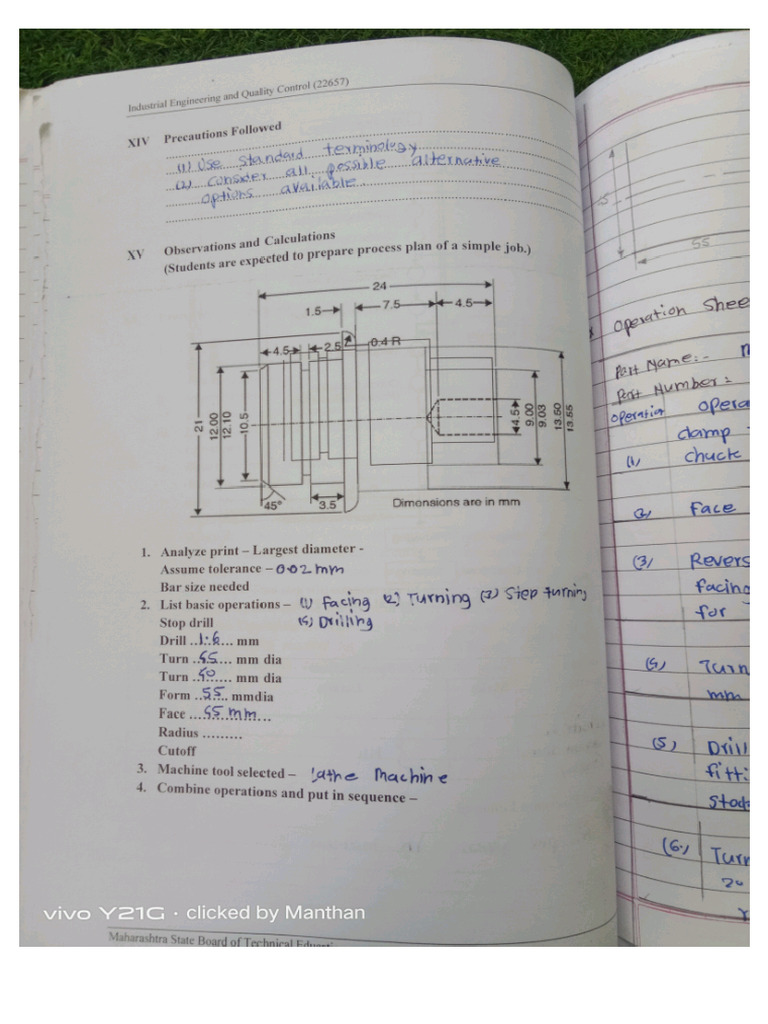 Industrial Engineering and Quality Control (22657)
XIV Precautions Followed
(1) Use standard terminology
(2) consider all possible alternative
options available.
XV Observations and Calculations
(Students are expected to prepare process plan of a simple job.)
24
1.5 7.5 4.5
4.5 2.5 0.4 R
21
12.00
12.10
10.5
4.5
9.00
9.03
13.50
13.55
45° 3.5
Dimensions are in mm
1. Analyze print – Largest diameter -
Assume tolerance – 0.02 mm
Bar size needed
2. List basic operations – (1) Facing (2) Turning (3) Step turning
Stop drill (4) Drilling
Drill ..1.6... mm
Turn ..45.... mm dia
Turn ..40.... mm dia
Form ..55.. mmdia
Face ...45 mm...
Radius .........
Cutoff
3. Machine tool selected – lathe Machine
4. Combine operations and put in sequence –
vivo Y21G · clicked by Manthan
Maharashtra State Board of Technical
55
Operation Shee
Part Name:-
Part Number:
Operation opera
clamp
(1) chuck
(2) Face
(3) Revers
facing
for
(4) Turn
mm
(5) Drill
fitti
stock
(6) Turn
20